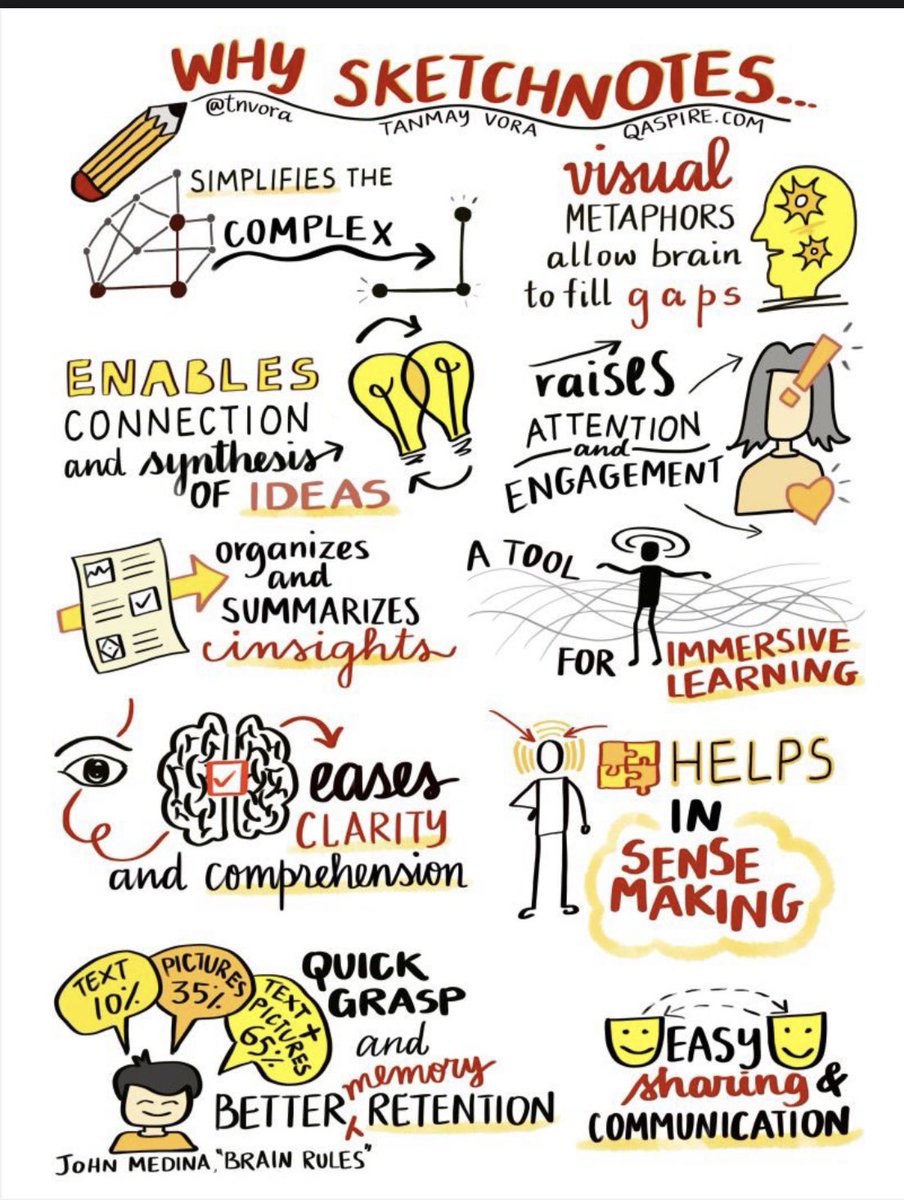 WHY SKETCHNOTES...
@tnvora
TANMAY VORA
QASPIRE.COM
SIMPLIFIES THE
COMPLEX
visual
METAPHORS
allow brain
to fill gaps
ENABLES
CONNECTION
and synthesis
OF IDEAS
raises
ATTENTION
and
ENGAGEMENT
organizes
and
SUMMARIZES
insights
A TOOL
FOR IMMERSIVE
LEARNING
eases
CLARITY
and comprehension
HELPS
IN
SENSE
MAKING
TEXT
10%
PICTURES
35%
TEXT +
PICTURES
65%
QUICK
GRASP
and
memory
BETTER RETENTION
JOHN MEDINA, "BRAIN RULES"
EASY
sharing &
COMMUNICATION